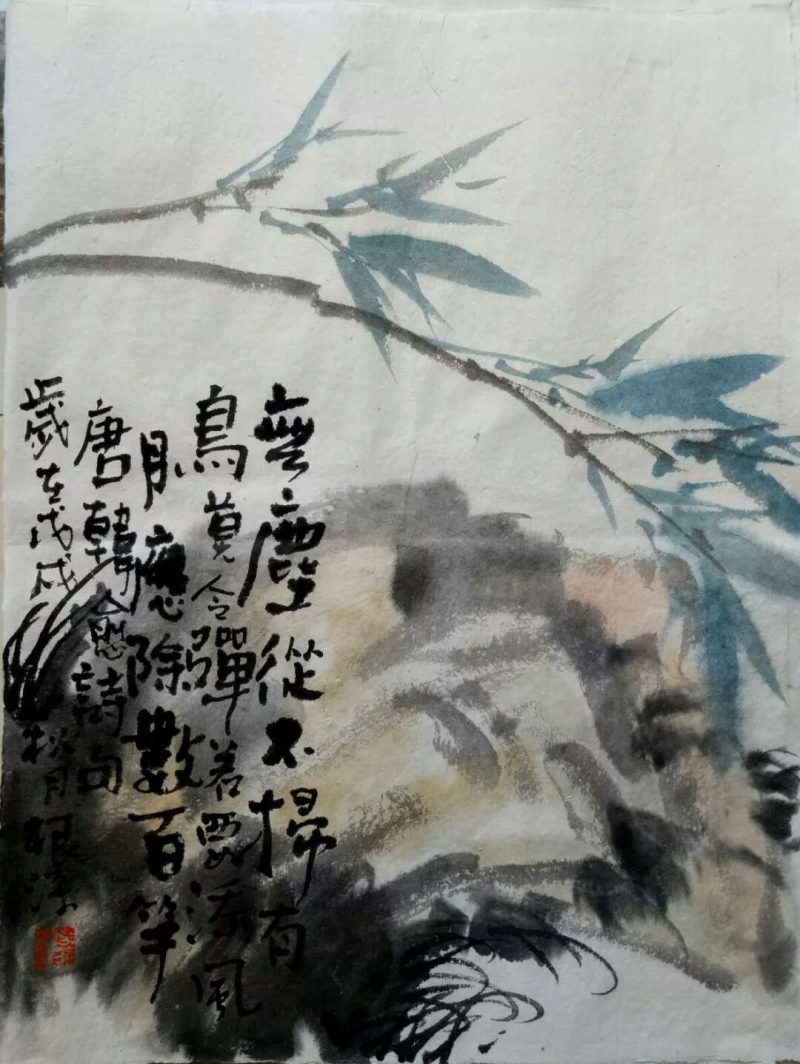 無塵從不掃有
鳥莫令彈若要添風
月應除數百竿
唐韓愈詩句
歲在戊戌月根